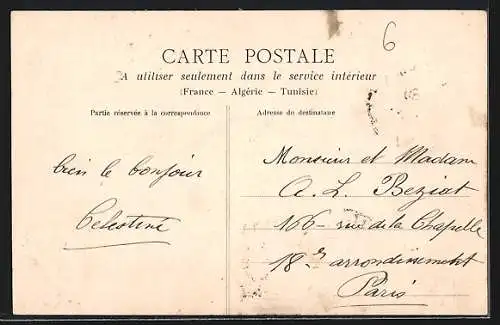 6
CARTE POSTALE
A utiliser seulement dans le service intérieur
(France — Algérie — Tunisie)
Partie réservée à la correspondance
Adresse du destinataire
bien le bonjour
Celestine
Monsieur et Madam
A. L. Beziat
166 - rue de la Chapelle
18e arrondissement
Paris